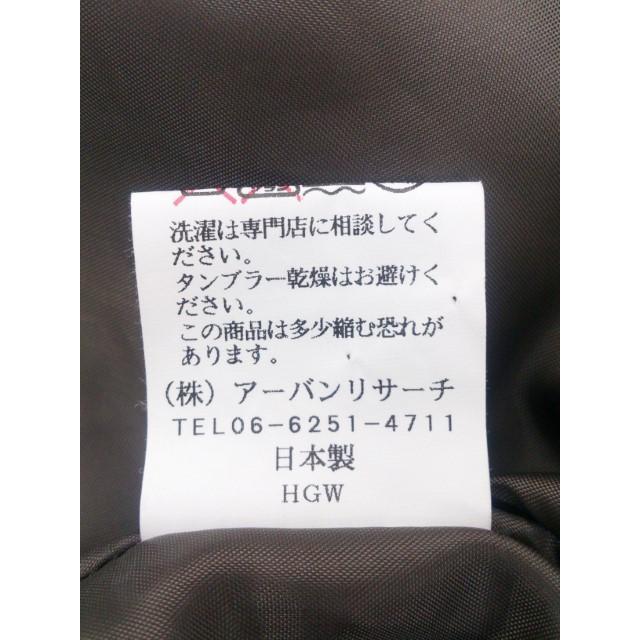 洗濯は専門店に相談してく
ださい。
タンブラー乾燥はお避けく
ださい。
この商品は多少縮む恐れが
あります。
（株）アーバンリサーチ
TEL06-6251-4711
日本製
HGW